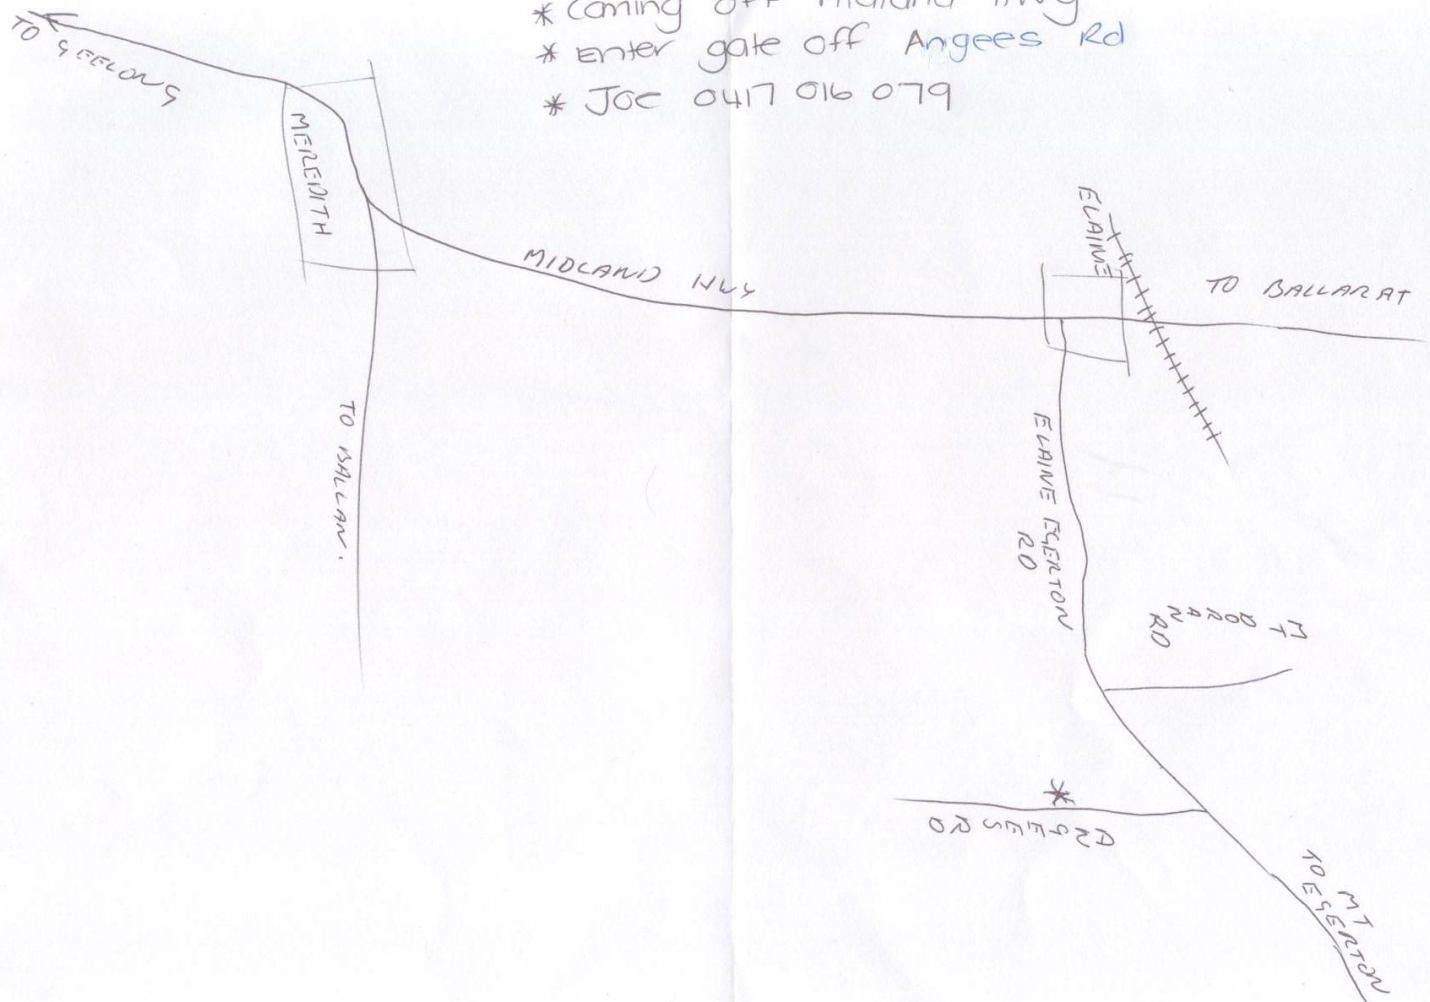 * Coming off Midland Hwy
* Enter gate off Angees Rd
* Joe 0417 016 079
TO GEELONG
MEREDITH
MIDLAND HWY
ELAINE
TO BALLARAT
TO BALLAN.
ELAINE EGERTON
RD
MT DORAN
RD
ANGEES RD
TO MT
EGERTON